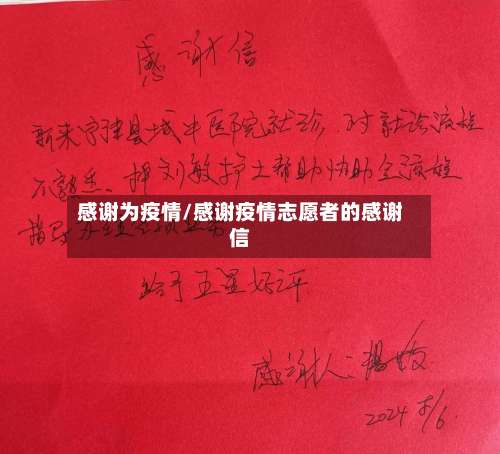 感谢信
新来宁津县城中医院就诊，对就诊流程
不熟悉、押刘敏护士帮助协助全流程
感谢为疫情/感谢疫情志愿者的感谢
信
给予五星好评
感谢人：杨
2024 5/6.